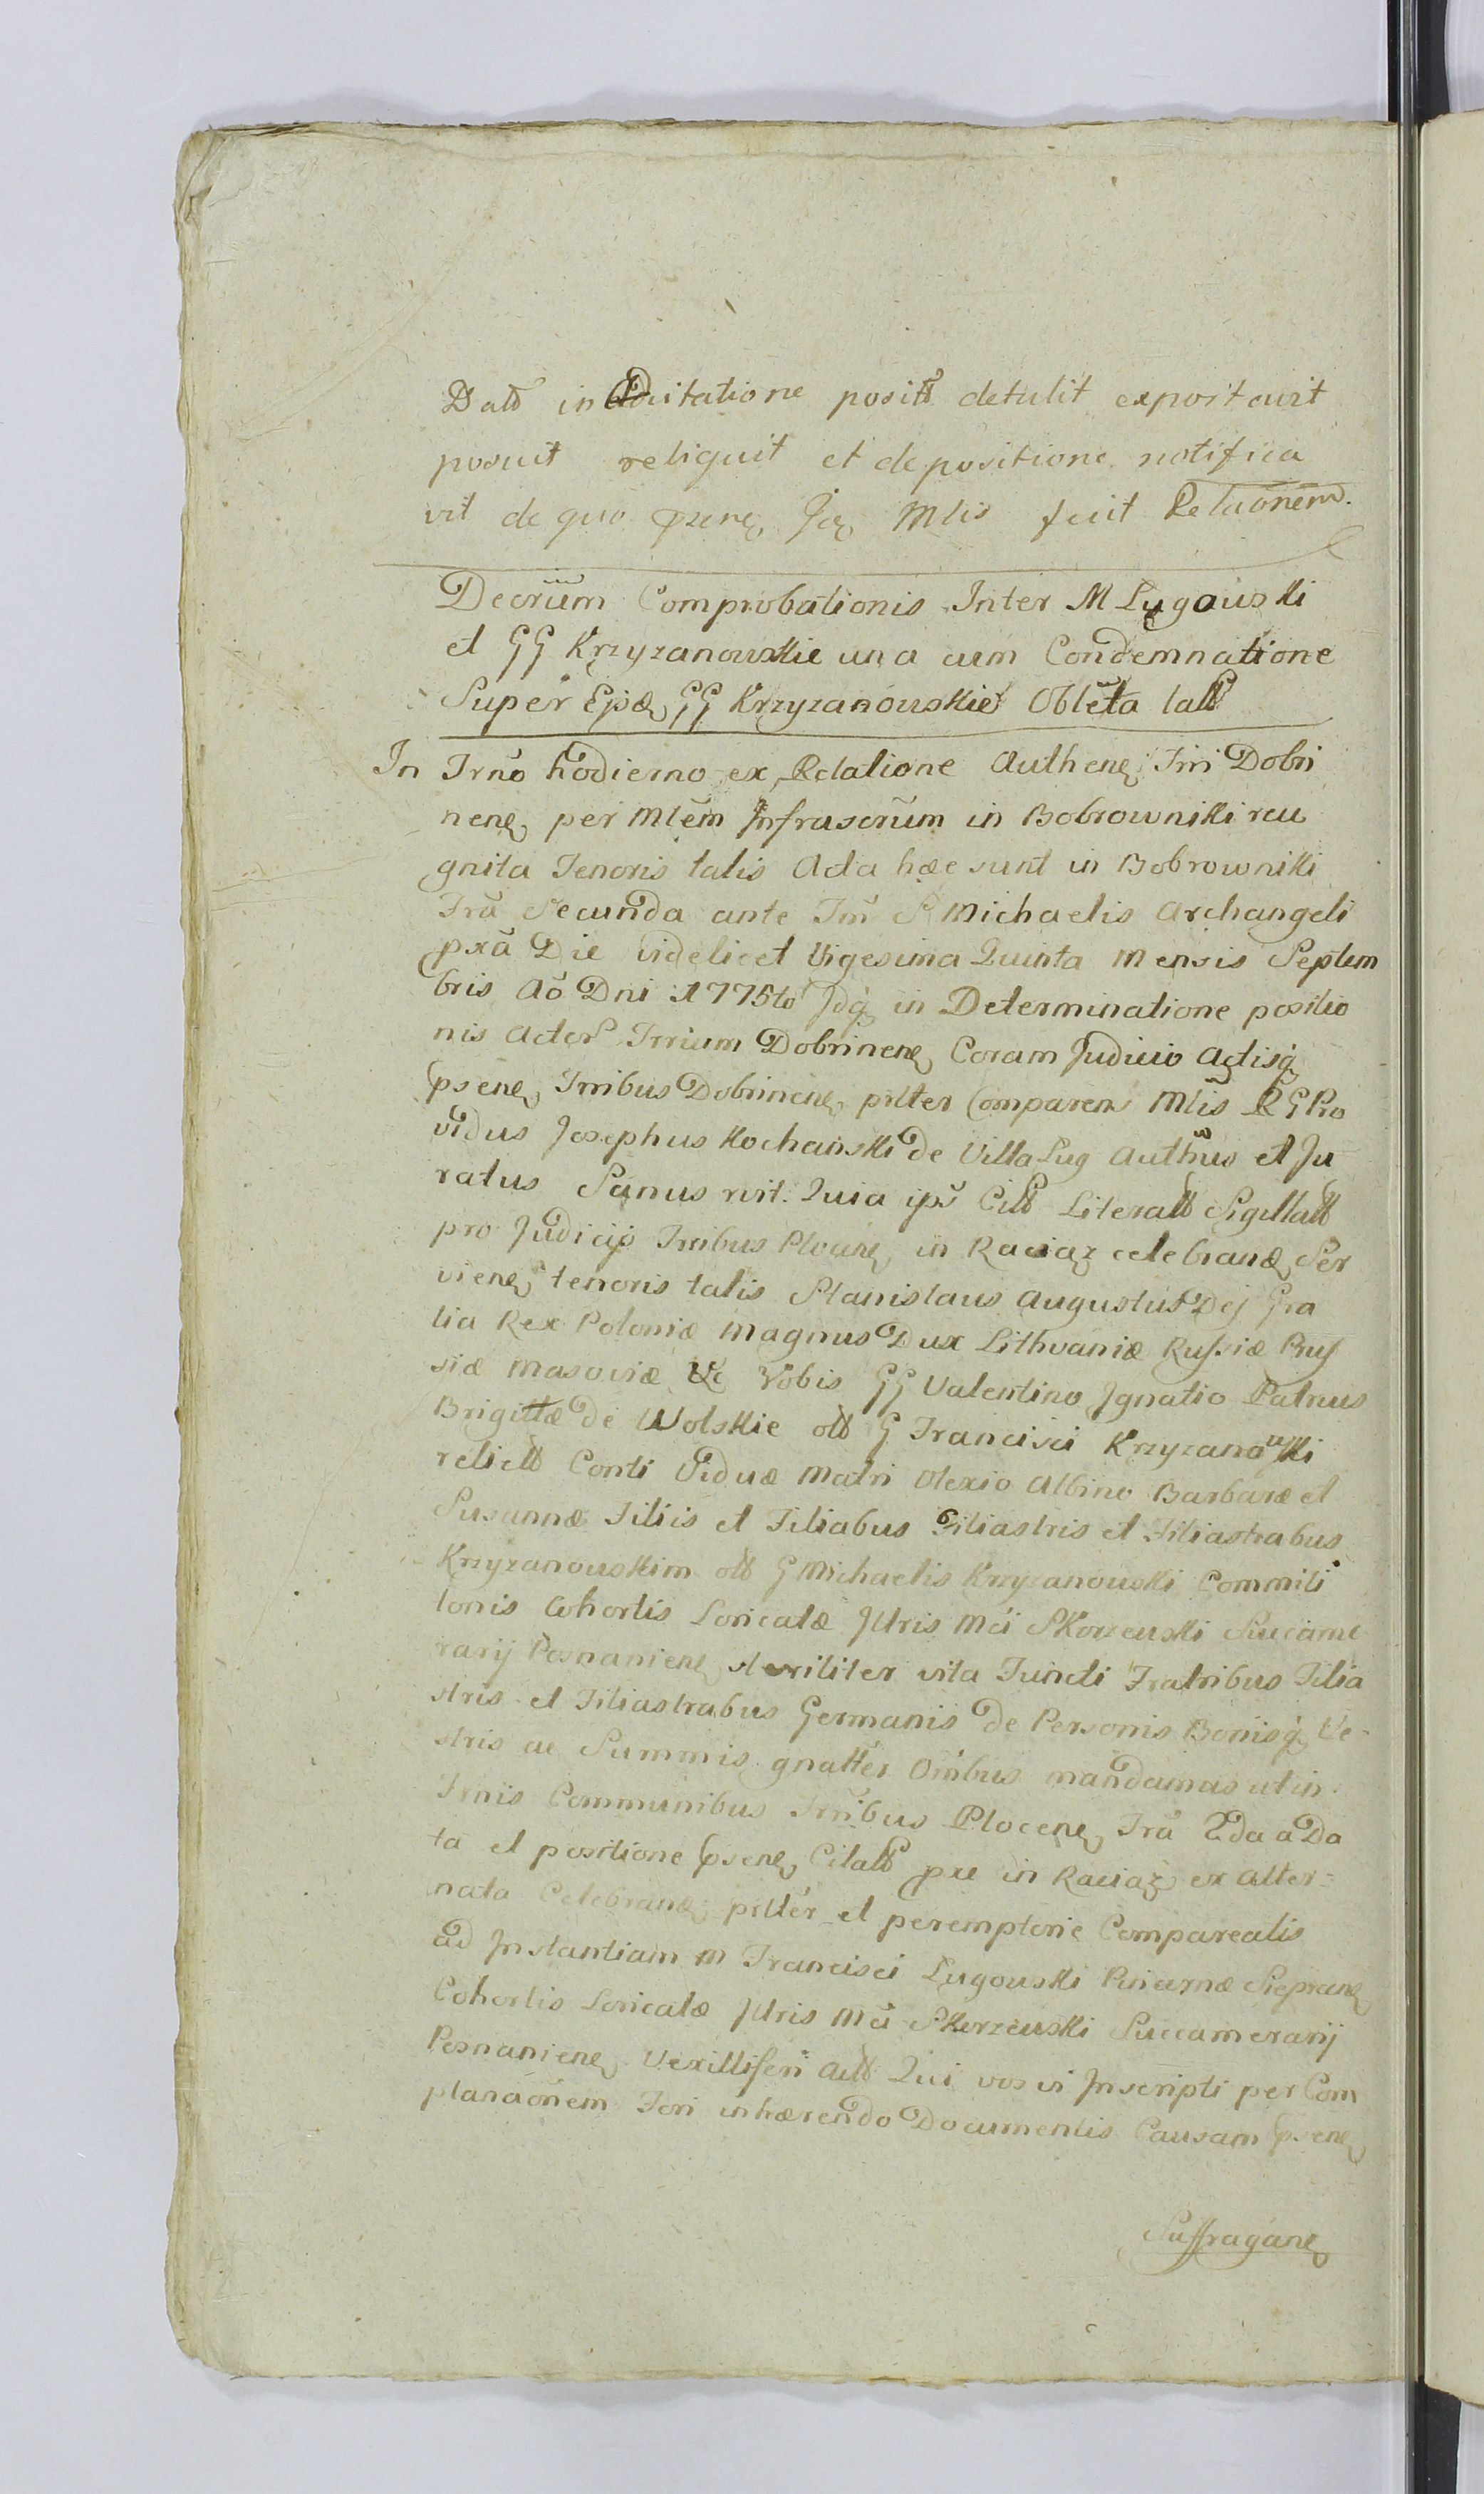 Datt in Citatione positt detulit exportavit
posuit reliquit et depositione notifica
vit de quo pzenę Jcę Mlis fecit Relaõnem.
Decrũm Comprobationis Inter M Lugowski
et GG Krzyzanowskie una cum Condemnatione
Super Epdę GG Krzyzanowskie Oblẽta latt
In Trnõ hodierno ex Relatione Authenę Trri Dobri
nenę per Mlẽm Infrascrũm in Bobrowniki reco
gnita Tenoris talis Acta hæc sunt in Bobrowniki
Frã Secunda ante Fm̃ S Michaelis Archangeli
pxã Die videlicet Vigesima Quinta Mensis Septem
bris Aõ Dni 1775to Idq̃ in Determinatione positio
nis Actor Trrium Dobrinenę Coram Judicio Actisq̃
psenę Trribus Dobrinenę psltter Comparens Mlis R G Pro
vidus Josephus Kochanski de Villa Lug Authũs et Ju
ratus Sanus rvit. Quia ips̃ Citt Literatt Sigillatt
pro Judicijs Trribus Plocenę in Raciąz celebrandę Ser
vienę tenoris talis Stanislaus Augustus Dej Gra
tia Rex Poloniæ Magnus Dux Lithvaniæ Russiæ Prus
siæ Masoviæ &c Vobis GG Valentino Ignatio Patruus
Brigittæ de Wolskie ott G Francisci Krzyzanowski
relictt Conti Viduæ Matri Alexio Albino Barbaræ et
Susannæ Filiis et Filiabus Filiastris et Filiastrabus
Krzyzanowskim ott G Michaelis Krzyzanowski Commili
tonis Cohortis Loricatæ Jllris Mci Skorzewski Succame
rarij Posnanienę steriliter vita Functi Fratribus Filia
stris et Filiastrabus Germanis de Personis Bonisq̃ Ve-
stris ac Summis gnaltter Om̃ibus mandamus ut in
Trnis Communibus Trribus Plocenę Frã 2da a Da
ta et positione psenę Citatt pxe in Raciąz ex Alter=
nata Celebrandę psltter et peremptorie Compareatis
ad Instantiam M Francisci Lugowski Pincernæ Sieprcenę
Cohortis Loricatæ Jllris Mci Skorzewski Succamerarij
Posnanienę Vexilliferi Actt Qui vos vi Inscripti per Com
planaõnem Fori inhærendo Documentis Causam psenę
Suffraganę